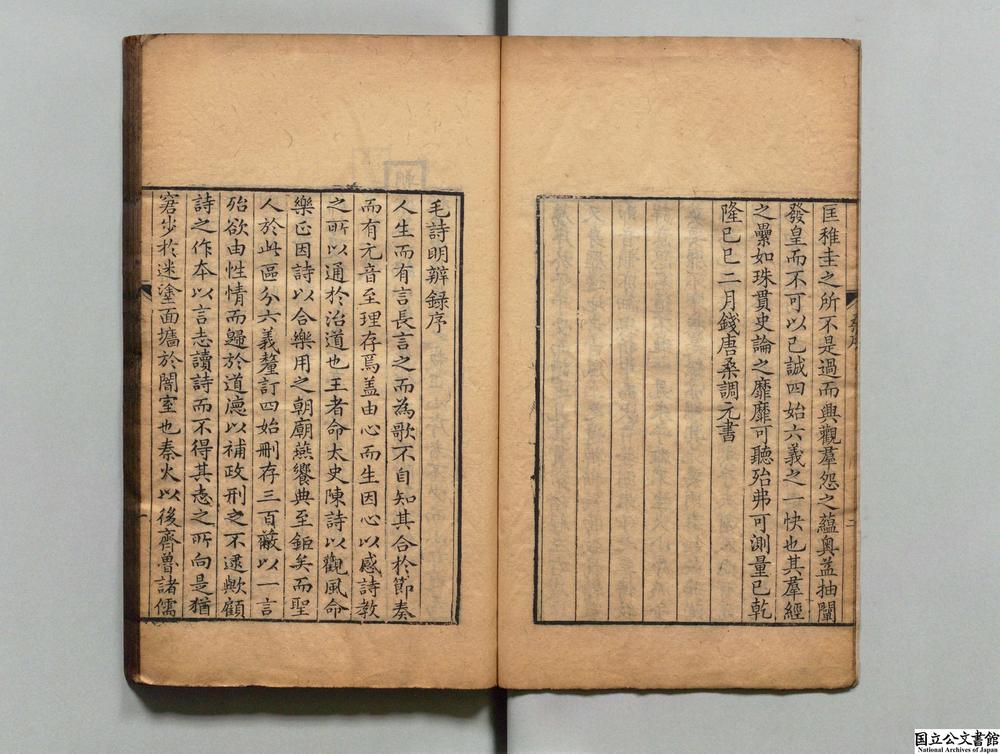 匡稚圭之所不是過而興觀羣怨之蘊奧益抽闡
發皇而不可以已誠四始六義之一快也其羣經
之纍如珠貫史論之靡靡可聽殆弗可測量已乾
隆己巳二月錢唐桑調元書
桑序
二
毛詩明辨録序
人生而有言長言之而為歌不自知其合於節奏
而有元音至理存焉盖由心而生因心以感詩教
之所以通於治道也王者命太史陳詩以觀風命
樂正因詩以合樂用之朝廟燕饗典至鉅矣而聖
人於此區分六義釐訂四始刪存三百蔽以一言
殆欲由性情而歸於道德以補政刑之不逮歟顧
詩之作本以言志讀詩而不得其志之所向是猶
窘步於迷塗面牆於闇室也秦火以後齊魯諸儒
国立公文書館
National Archives of Japan